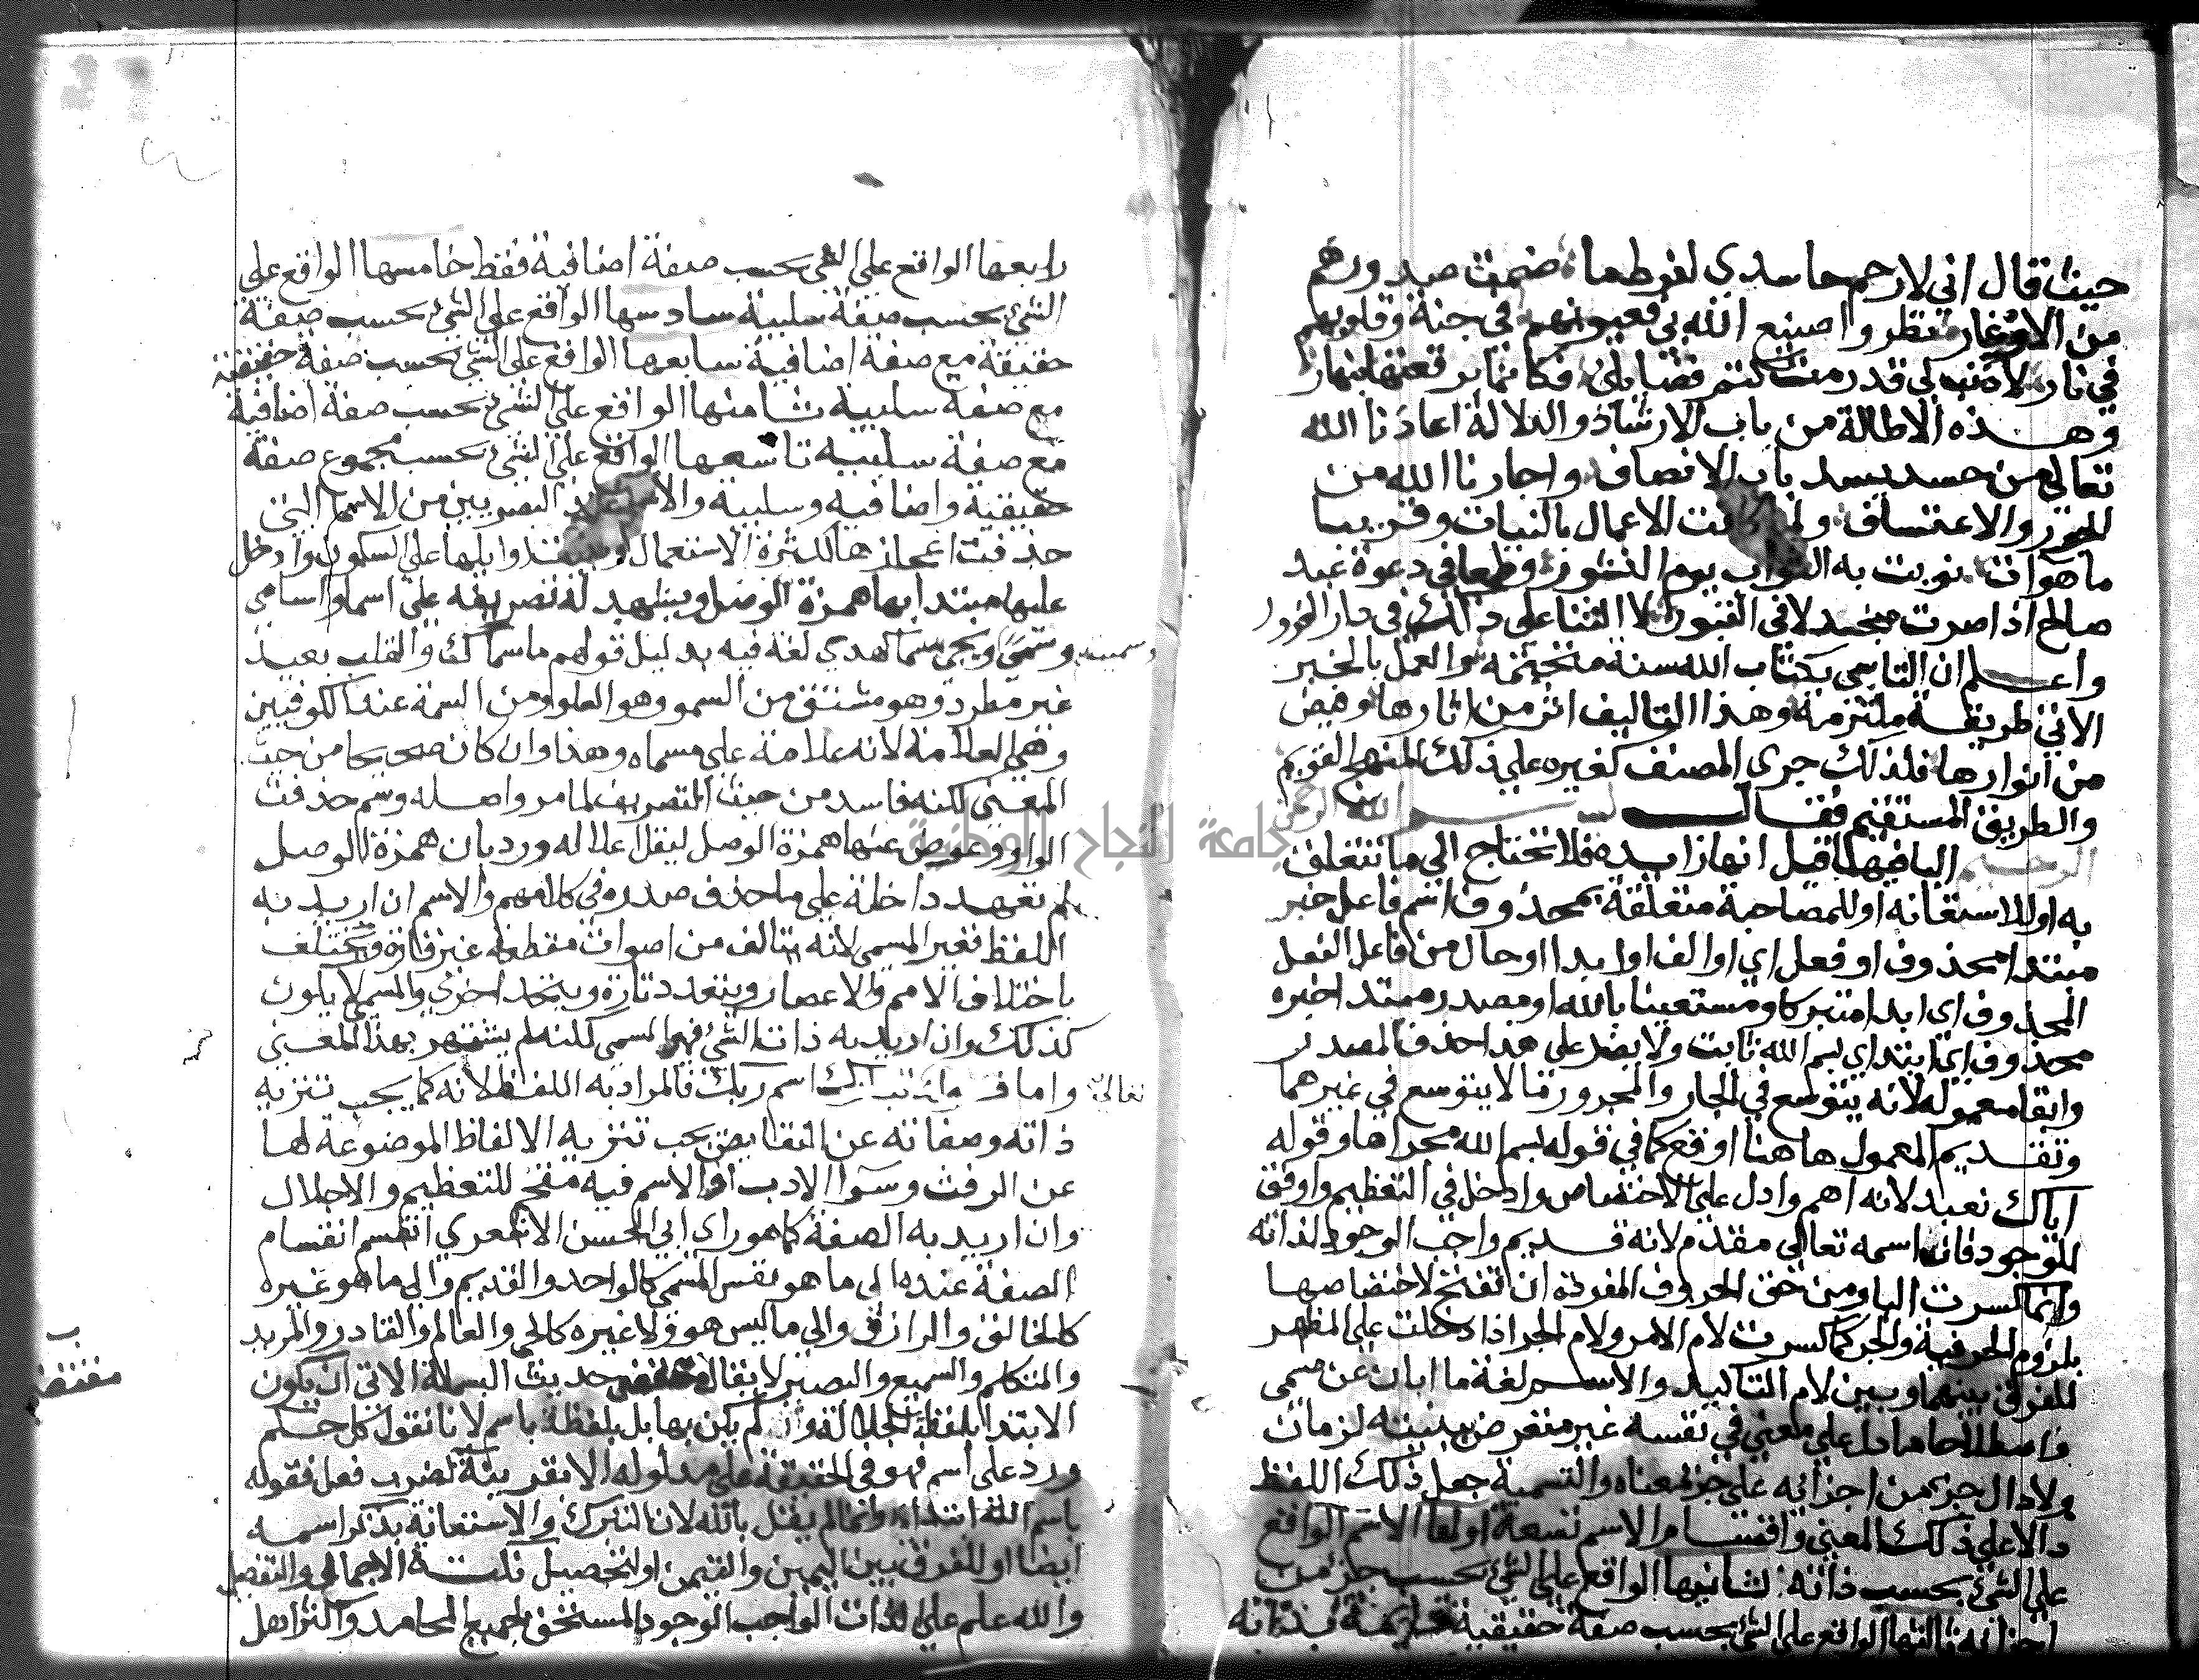 حيث قال اني لارحم حاسدي لفرط ما ضمت صدورهم
من الاوغار نظروا صنيع الله بي فعيونهم في جنة وقلوبهم
في نار لا ذنب لي قد رمت كتم فضايلي فكانما برقعتها بنهار
وهذه الاطالة من باب الارشاد والدلالة اعاذنا الله
تعالي من حسد يسد باب الانصاف واجارنا الله من
الجور والاعتساف الاعمال بالنيات وقريبا
ما هو ات نويت به الثواب يوم النشور وطمعا في دعوة عبد
صالح اذا صرت منجدلا في القبور لا الثنا علي ذلك في دار الغرور
واعلم ان التاسي بكتاب الله سنة متحتمة والعمل بالخبر
الاتي طريقة ملتزمة وهذا التاليف اثر من اثارها وفيض
من انوارها فلذلك جري المصنف كغيره علي ذلك المنهج القويم
والطريق المستقيم فقال بسم الله الرحمن
الرحيم البا فيها قيل انها زايدة فلا تحتاج الي ما تتعلق
به او للاستعانه او للمصاحبة متعلقة بمحذوف اسم فاعل خبر
مبتدا محذوف او فعل اي اولف او ابدا او حال من فاعل الفعل
المحذوف اي ابدا متبركا ومستعينا بالله او مصدر مبتدا خبره
محذوف اي ابتداي بسم الله ثابت ولا يضر علي هذا حذف المصدر
وابقا معموله لانه يتوسع في الجار والمجرور ما لا يتوسع في غيرهما
وتقديم المعمول هاهنا اوقع كما في قوله بسم الله مجراها وقوله
اياك نعبد لانه اهم وادل علي الاختصاص وادخل في التعظيم واوفق
للوجود فان اسمه تعالي مقدم لانه قديم واجب الوجود لذاته
وانما كسرت البا ومن حق الحروف المفردة ان تفتح لاختصاصها
بلزوم الحرفية والجر كما كسرت لام الامر ولام الجر اذا دخلت علي المظهر
للفرق بينهما وبين لام التاكيد والاسم لغة ما ابان عن مسمي
واصطلاحا ما دل علي معني في نفسه غير متعرض ببنيته لزمان
ولا دال جزء من اجزائه علي جزء معناه والتسمية جعل ذلك اللفظ
دالا علي ذلك المعني واقسام الاسم تسعة اولها الاسم الواقع
علي الشئ بحسب ذاته ثانيها الواقع علي الشئ بحسب جزء من
اجزائه ثالثها الواقع علي الشئ بحسب صفة حقيقية قايمة بذاته
رابعها الواقع علي الشئ بحسب صفة اضافية فقط خامسها الواقع علي
الشئ بحسب صفة سلبية سادسها الواقع علي الشئ بحسب صفة
حقيقة مع صفة اضافية سابعها الواقع علي الشئ بحسب صفة حقيقة
مع صفة سلبية ثامنها الواقع علي الشئ بحسب صفة اضافية
مع صفة سلبية تاسعها الواقع علي الشئ بحسب مجموع صفة
حقيقية واضافيه وسلبية والاسم عند البصريين من الاسما التي
حذفت اعجازها لكثرة الاستعمال وايلها علي السكون وادخل
عليها مبتدا بها همزة الوصل ويشهد له تصريفه علي اسما واسامي
وسميت وسمي ويجي سما كهدي لغة فيه بدليل قولهم ما سماك والقلب بعيد
غير مطرد وهو مشتق من السمو وهو العلو او من السمة عند الكوفيين
وهي العلامة لانه علامة علي مسماه وهذا وان كان صحيحا من حيث
المعني لكنه فاسد من حيث التصريف لما مر واصله وسم حذفت
الواو وعوض عنها همزة الوصل ليقل اعلاله ورد بان همزة الوصل
لم تعهد داخلة علي ما حذف صدره في كلامهم والاسم ان اريد به
اللفظ فغير المسمي لانه يتالف من اصوات مقطعه غير قارة وتختلف
باختلاف الامم والاعصار ويتعدد تارة ويتحد اخري والمسمي لا يكون
كذلك وان اريد به ذات الشئ فهو المسمي لكنه لم يشتهر بهذا المعني
واما تبارك اسم ربك فالمراد به اللفظ لانه كما يجب تنزيه
تعالي
ذاته وصفاته عن النقايص يجب تنزيه الالفاظ الموضوعة لها
عن الرفث وسوا الادب او الاسم فيه مقحم للتعظيم والاجلال
وان اريد به الصفة كما هو راي ابي الحسن الاشعري انقسم انقسام
الصفة عنده الي ما هو نفس المسمي كالواحد والقديم والي ما هو غيره
كالخالق والرازق والي ما ليس هو ولا غيره كالحي والعالم والقادر والمريد
والمتكلم والسميع والبصير لا يقال مقتضي حديث البسملة الاتي ان يكون
مقتضي
الابتدا بلفظ الجلالة ولم يكن بها بل بلفظة باسم لانا نقول كل حكم
ورد علي اسم فهو في الحقيقة علي مدلوله الا بقرينة كضرب فعل فقوله
باسم الله ابتدا وانما لم يقل بالله لان التبرك والاستعانة بذكر اسمه
ايضا او للفرق بين اليمين والتيمن او لتحصيل نكتة الاجمال والتفصيل
والله علم علي الذات الواجب الوجود المستحق لجميع المحامد واكثر اهل
جامعة النجاح الوطنية